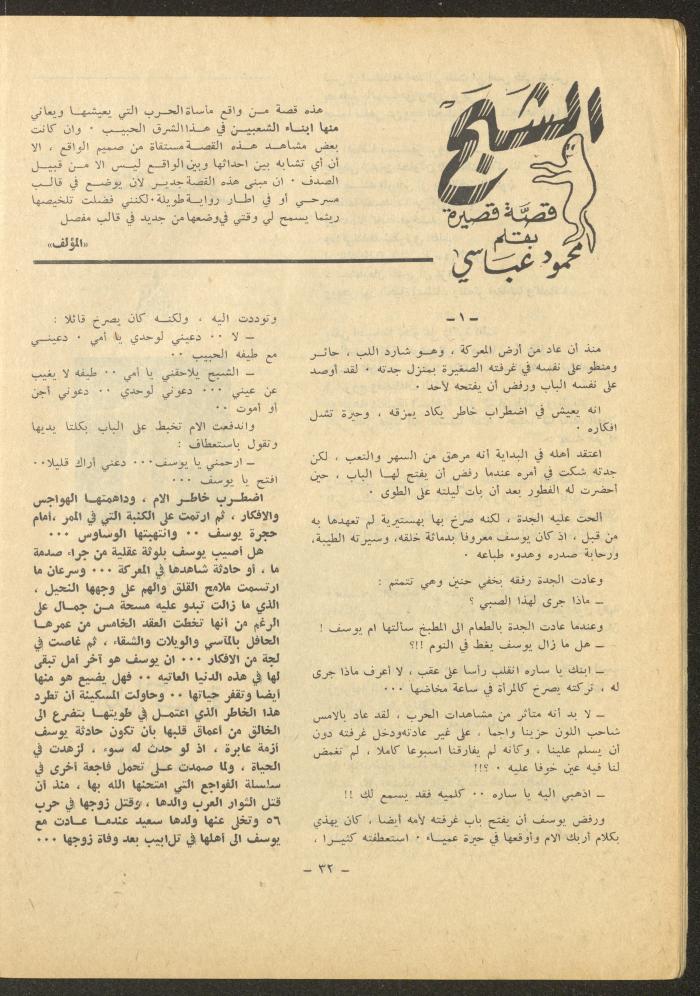 الشبح
قصة قصيرة
بقلم
محمود عباسي
هذه قصة من واقع مأساة الحرب التي يعيشها ويعاني
منها ابناء الشعبين في هذا الشرق الحبيب ٠ وان كانت
بعض مشاهد هذه القصة مستقاة من صميم الواقع ، الا
أن أي تشابه بين احداثها وبين الواقع ليس الا من قبيل
الصدف ٠ ان مبنى هذه القصة جدير لان يوضع في قالب
مسرحي أو في اطار رواية طويلة ٠ لكنني فضلت تلخيصها
ريثما يسمح لي وقتي في وضعها من جديد في قالب مفصل
«المؤلف»
ــ ١ ــ
منذ أن عاد من أرض المعركة ، وهو شارد اللب ، حائر
ومنطو على نفسه في غرفته الصغيرة بمنزل جدته ٠ لقد أوصد
على نفسه الباب ورفض أن يفتحه لأحد ٠
انه يعيش في اضطراب خاطر يكاد يمزقه ، وحيرة تشل
افكاره ٠
اعتقد أهله في البداية أنه مرهق من السهر والتعب ، لكن
جدته شكت في أمره عندما رفض أن يفتح لها الباب ، حين
أحضرت له الفطور بعد أن بات ليلته على الطوى ٠
ألحت عليه الجدة ، لكنه صرخ بها بهستيرية لم تعهدها به
من قبل ، اذ كان يوسف معروفا بدماثة خلقه، وسيرته الطيبة،
ورحابة صدره وهدوء طباعه ٠
وعادت الجدة رفقه بخفي حنين وهي تتمتم :
ــ ماذا جرى لهذا الصبي ؟
وعندما عادت الجدة بالطعام الى المطبخ سألتها ام يوسف !
ــ هل ما زال يوسف يغط في النوم !!؟
ــ ابنك يا ساره انقلب رأسا على عقب ، لا أعرف ماذا جرى
له ، تركته يصرخ كالمرأة في ساعة مخاضها ٠٠٠
ــ لا بد أنه متأثر من مشاهدات الحرب ، لقد عاد بالامس
شاحب اللون حزينا واجما ، على غير عادته ودخل غرفته دون
أن يسلم علينا ، وكأنه لم يفارقنا اسبوعا كاملا ، لم تغمض
لنا فيه عين خوفا عليه ٠ ؟!!
ــ اذهبي اليه يا ساره ٠٠ كلميه فقد يسمع لك !!
ورفض يوسف أن يفتح باب غرفته لأمه أيضا ، كان يهذي
بكلام أربك الام وأوقعها في حيرة عمياء ٠ استعطفته كثيرا ،
وتوددت اليه ، ولكنه كان يصرخ قائلا :
ــ لا ٠٠ دعيني لوحدي يا أمي ٠ دعيني
مع طيفه الحبيب ٠٠
ــ الشبح يلاحقني يا أمي ٠٠ طيفه لا يغيب
عن عيني ٠٠٠ دعوني لوحدي ٠٠ دعوني أجن
أو أموت ٠٠
واندفعت الام تخبط على الباب بكلتا يديها
وتقول باستعطاف :
ــ ارحمني يا يوسف ٠٠٠ دعني أراك قليلا ٠٠
افتح يا يوسف ٠٠٠
اضطرب خاطر الام ، وداهمتها الهواجس
والافكار ، ثم ارتمت على الكنبة التي في الممر ،أمام
حجرة يوسف ٠٠ وانتهبتها الوساوس ٠٠٠
هل أصيب يوسف بلوثة عقلية من جراء صدمة
ما ، أو حادثة شاهدها في المعركة ٠٠٠ وسرعان ما
ارتسمت ملامح القلق والهم على وجهها النحيل ،
الذي ما زالت تبدو عليه مسحة من جمال على
الرغم من أنها تخطت العقد الخامس من عمرها
الحافل بالمآسي والويلات والشقاء ، ثم غاصت في
لجة من الافكار ٠٠٠ ان يوسف هو آخر أمل تبقى
لها في هذه الدنيا العاتيه ٠٠ فهل يضيع هو منها
أيضا وتقفر حياتها ٠٠ وحاولت المسكينة أن تطرد
هذا الخاطر الذي اعتمل في طويتها بتضرع الى
الخالق من أعماق قلبها بأن تكون حادثة يوسف
أزمة عابرة ، اذ لو حدث له سوء ، لزهدت في
الحياة ، ولما صمدت على تحمل فاجعة أخرى في
سلسلة الفواجع التي امتحنها الله بها ، منذ أن
قتل الثوار العرب والدها ، وقتل زوجها في حرب
٥٦ وتخلى عنها ولدها سعيد عندما عادت مع
يوسف الى أهلها في تل ابيب بعد وفاة زوجها ٠٠٠
ــ ٣٢ ــ